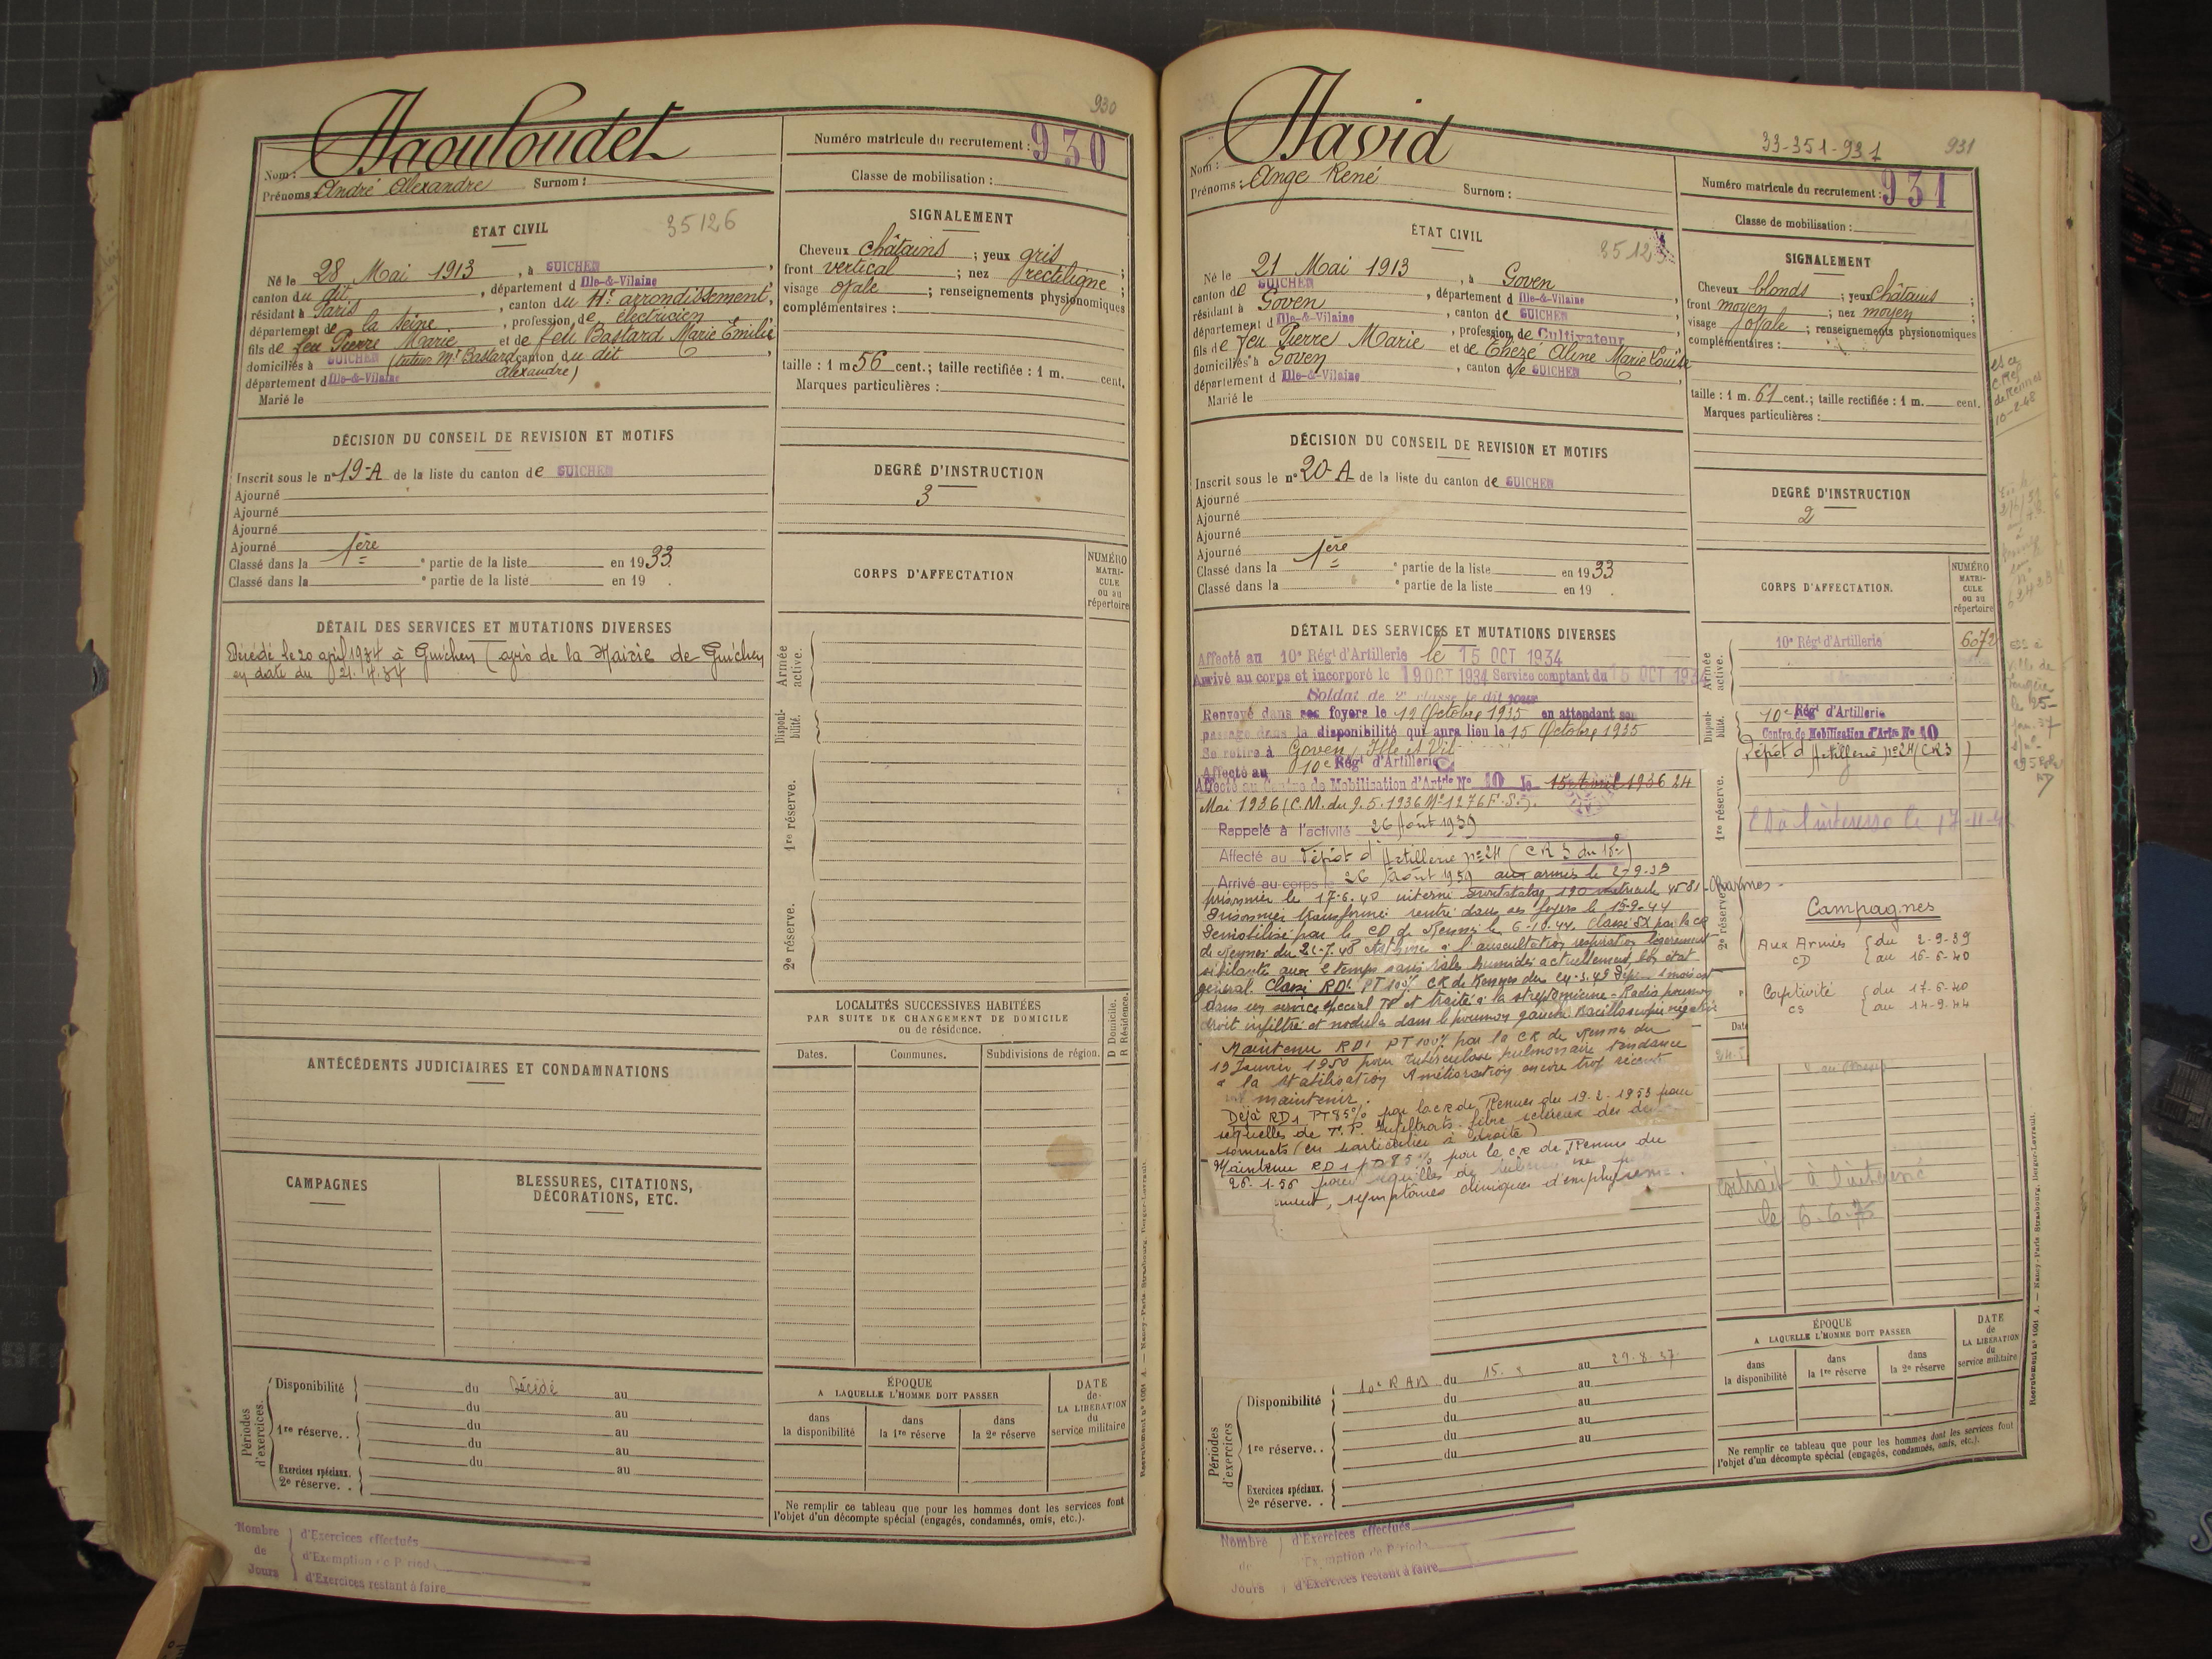 930
Daouloudet
Nom :
Prénoms : André Alexandre Surnom :
Numéro matricule du recrutement : 930
Classe de mobilisation :
ÉTAT CIVIL
35126
Né le 28 Mai 1913, à GUICHEN,
canton du dit, département d Ille-&-Vilaine
résidant à Paris, canton du 11e arrondissement,
département de la Seine, profession de électricien
fils de feu Pierre Marie et de feue Bastard Marie Émilie
domiciliés à GUICHEN (tuteur Mr Bastard canton du dit
département d Ille-&-Vilaine Alexandre)
Marié le
SIGNALEMENT
Cheveux châtains ; yeux gris ;
front vertical ; nez rectiligne ;
visage ovale ; renseignements physionomiques
complémentaires :
taille : 1 m 56 cent.; taille rectifiée : 1 m. cent.
Marques particulières :
DÉCISION DU CONSEIL DE REVISION ET MOTIFS
Inscrit sous le n° 19-A de la liste du canton de GUICHEN
Ajourné
Ajourné
Ajourné
Ajourné
Classé dans la 1ère partie de la liste en 1933.
Classé dans la e partie de la liste en 19 .
DEGRÉ D'INSTRUCTION
3
CORPS D'AFFECTATION
NUMÉRO
MATRI-
CULE
ou au
répertoire
DÉTAIL DES SERVICES ET MUTATIONS DIVERSES
Décédé le 20 avril 1934 à Guichen (avis de la Mairie de Guichen
en date du 21.4.34
Armée
active.
Disponi-
bilité.
1re réserve.
2e réserve.
LOCALITÉS SUCCESSIVES HABITÉES
PAR SUITE DE CHANGEMENT DE DOMICILE
ou de résidence.
D Domicile.
R Résidence.
Dates. Communes. Subdivisions de région.
ANTÉCÉDENTS JUDICIAIRES ET CONDAMNATIONS
CAMPAGNES
BLESSURES, CITATIONS,
DÉCORATIONS, ETC.
Périodes
d'exercices.
Disponibilité du Décédé au
du au
1re réserve. . du au
du au
du au
Exercices spéciaux.
2e réserve. .
ÉPOQUE
A LAQUELLE L'HOMME DOIT PASSER
dans
la disponibilité
dans
la 1re réserve
dans
la 2e réserve
DATE
de
LA LIBÉRATION
du
service militaire
Ne remplir ce tableau que pour les hommes dont les services font
l'objet d'un décompte spécial (engagés, condamnés, omis, etc.).
Recrutement n° 1001 A. — Nancy-Paris-Strasbourg, Berger-Levrault.
Nombre
de
Jours
d'Exercices effectués
d'Exemption de Période
d'Exercices restant à faire
33-351-931
931
David
Nom :
Prénoms : Ange René Surnom :
Numéro matricule du recrutement : 931
Classe de mobilisation :
ÉTAT CIVIL
Né le 21 Mai 1913, à Goven
canton de GUICHEN, département d Ille-&-Vilaine
résidant à Goven, canton de GUICHEN
département d Ille-&-Vilaine, profession de Cultivateur
fils de feu Pierre Marie et de Thezé Aline Marie Louise
domiciliés à Goven, canton de GUICHEN
département d Ille-&-Vilaine
Marié le
SIGNALEMENT
Cheveux blonds ; yeux châtains ;
front moyen ; nez moyen ;
visage ovale ; renseignements physionomiques
complémentaires :
taille : 1 m. 61 cent.; taille rectifiée : 1 m. cent.
Marques particulières :
de Rennes
10-8-48
DÉCISION DU CONSEIL DE REVISION ET MOTIFS
Inscrit sous le n° 20-A de la liste du canton de GUICHEN
Ajourné
Ajourné
Ajourné
Ajourné
Classé dans la 1ère partie de la liste en 1933
Classé dans la e partie de la liste en 19 .
DEGRÉ D'INSTRUCTION
2
CORPS D'AFFECTATION.
NUMÉRO
MATRI-
CULE
ou au
répertoire
DÉTAIL DES SERVICES ET MUTATIONS DIVERSES
Affecté au 10e Régt d'Artillerie le 15 OCT 1934
Arrivé au corps et incorporé le 19 OCT 1934 Service comptant du 15 OCT 1934
Soldat de 2e classe le dit jour
Renvoyé dans ses foyers le 12 Octobre 1935 en attendant son
passage dans la disponibilité qui aura lieu le 15 Octobre 1935
Se retire à Goven, Ille et Vil.
Affecté au 10e Régt d'Artillerie
Affecté au Centre de Mobilisation d'Artrie N° 10 le 15 Avril 1936 24
Mai 1936 (C.M. du 9.5.1936 N° 1276 F.S.).
Rappelé à l'activité 26 Août 1939
Affecté au Dépôt d'Artillerie n° 24
Arrivé au corps le 26 Août 1939 aux armées le 2-9-39
prisonnier le 17-6-40 interné
Prisonnier transformé rentré dans ses foyers le 15-9-44
Démobilisé par le CD de Rennes le 6-10-44. Classé SX par la CR
de Rennes du
sibilante aux 2 temps sans râles humides actuellement, bon état
général. Classé RD1 PT 100% CR de Rennes du
dans un service spécial TP et traité à la streptomycine - Radio poumon
droit infiltré et nodules dans le poumon gauche
Maintenu RD1 PT 100% par la CR de Rennes du
19 Janvier 1950 pour tuberculose pulmonaire tendance
à la stabilisation Amélioration encore trop récente
maintenir.
Déjà RD1 PT 85% par la CR de Rennes du 19-2-1953 pour
séquelles de T.P. Infiltrats
sommets (en particulier à droite)
Maintenu RD1 par la CR de Rennes du
26-1-56 pour séquelles de
symptômes cliniques d'emphysème.
Armée
active.
10e Régt d'Artillerie 6072
Disponi-
bilité.
10e Régt d'Artillerie
Centre de Mobilisation d'Artie N° 10
Dépôt d'Artillerie n° 24 (CR3)
1re réserve.
2e réserve.
Campagnes
Aux Armées du 2-9-39
CD au 16-6-40
Captivité du 17-6-40
CS au 14-9-44
Extrait à l'intéressé
Périodes
d'exercices
Disponibilité 10e RAD du 15.8 au 29-8-37
du au
du au
1re réserve. . du au
du au
Exercices spéciaux.
2e réserve. .
ÉPOQUE
A LAQUELLE L'HOMME DOIT PASSER
dans
la disponibilité
dans
la 1re réserve
dans
la 2e réserve
DATE
de
LA LIBÉRATION
du
service militaire
Ne remplir ce tableau que pour les hommes dont les services font
l'objet d'un décompte spécial (engagés, condamnés, omis, etc.).
Recrutement n° 1001 A. — Nancy-Paris-Strasbourg, Berger-Levrault.
Nombre
de
Jours
d'Exercices effectués
d'Exemption de Période
d'Exercices restant à faire